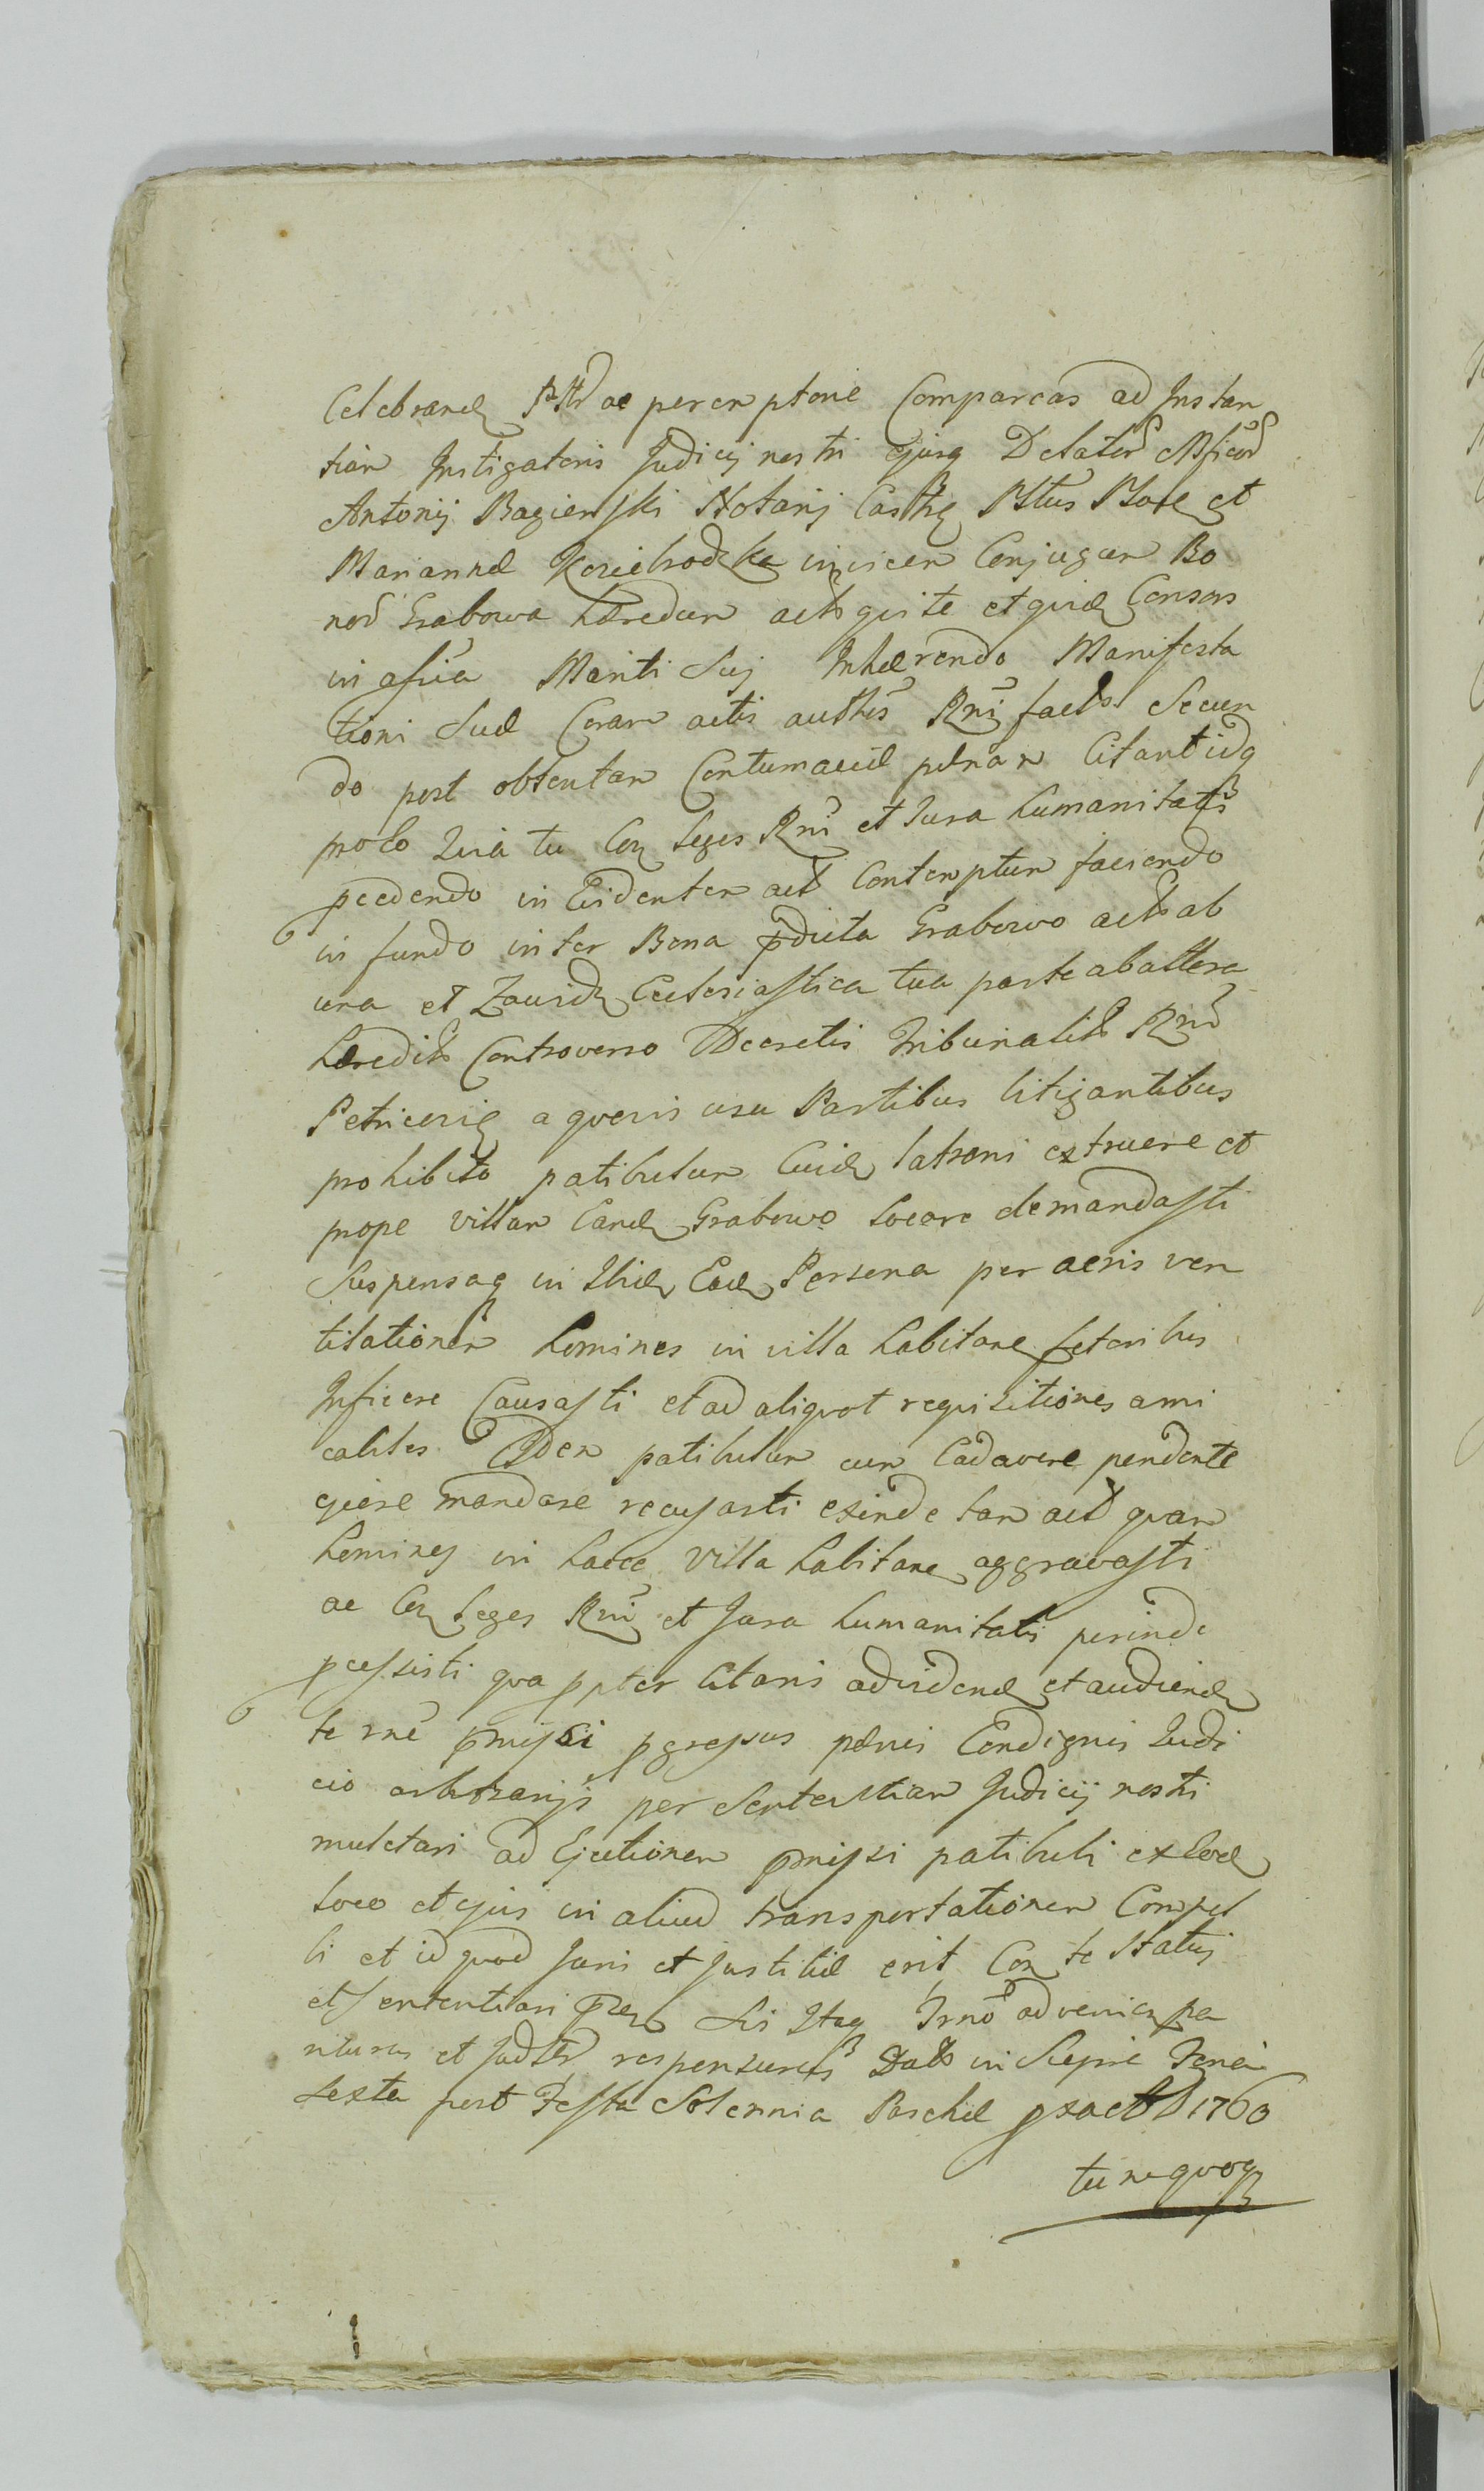 Celebrand ac peremptorie Compareas ad Instan
tiam Instigatoris Judicij nostri ejusq Delator Mficor
Antonij Bagienski Notarij Castr et
Mariannæ Koziebrodzka invicem Conjugum Bo
nor Grabowa hæredum actor qui te et quidem Consors
in assia Mariti Sui Inhærendo Manifesta
tioni Suæ Coram actis authis Rni factæ Secun
do post obtentam Contumaciæ pænam Citant idq
proeo Quia tu Con Leges Rni et Jura humanitatis
pcedendo in Evidentem act Contemptum faciendo
in fundo inter Bona pdicta Grabowo act ab
una et Ecclesiastica tua parte ab altera
hæredit Controverso Decretis Tribunalit Rni
Petricovien a quovis usu Partibus litigantibus
prohibito patibulum Cuid latroni extruere et
prope villam Eand Grabowo locare demandasti
Suspensaq in Ibid Ead Persona per aeris ven
tilationem homines in villa habitan fetoribus
Inficere Causasti et ad aliquot requisitiones ami
cabiles patibulum cum Cadavere pendente
ejicere mandare recusasti exinde tam act quam
homines in haece villa habitan aggravasti
ac Con Leges Rni et Jura humanitatis perinde
pcessisti qua ppter Citaris ad videnl et audiendl
te rne pmissi pgressus pænis Condignis Judi
cio arbitrarijs per Sententiam Judicij nostri
mulctari ad Ejectionem pmissi patibuli ex eod
loco et ejus in aliud transportationem Compel
li et id quod Juris et Justitiæ erit Con te Statui
et sententiari Sis Itaq Trno adveniens pa
riturus et Judltr responsurus Dat in Feria
Sexta post Festa Solennia Paschæ 1760
tuneqvoq